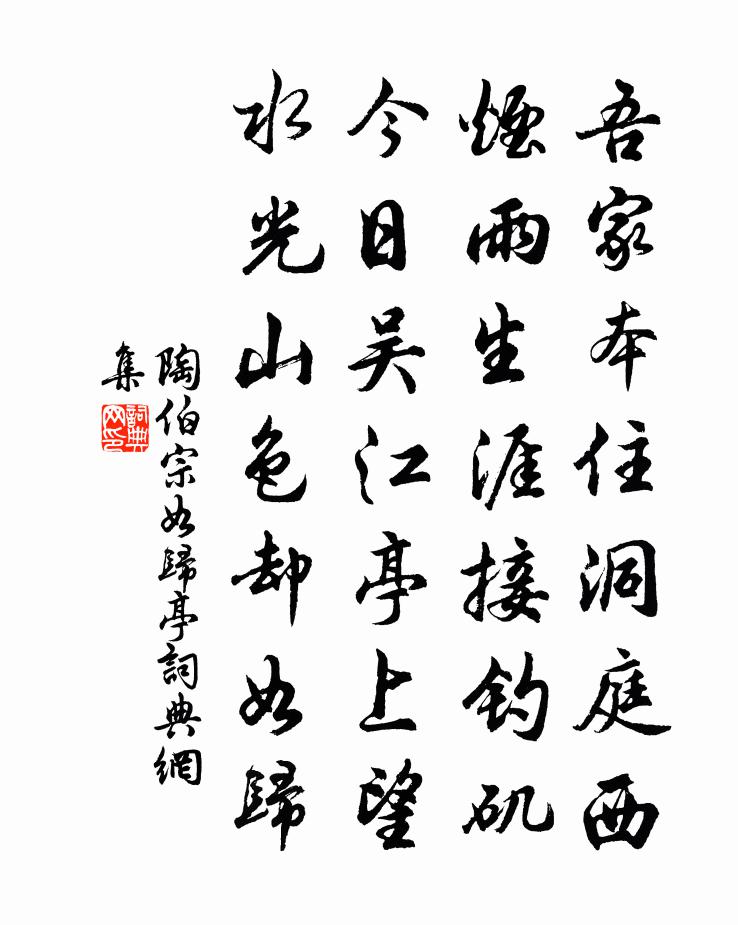 吾家本住洞庭西
煙雨生涯接釣矶
今日吴江亭上望
水光山色却如歸
陶伯宗如歸亭詞典網
集
詞典网印